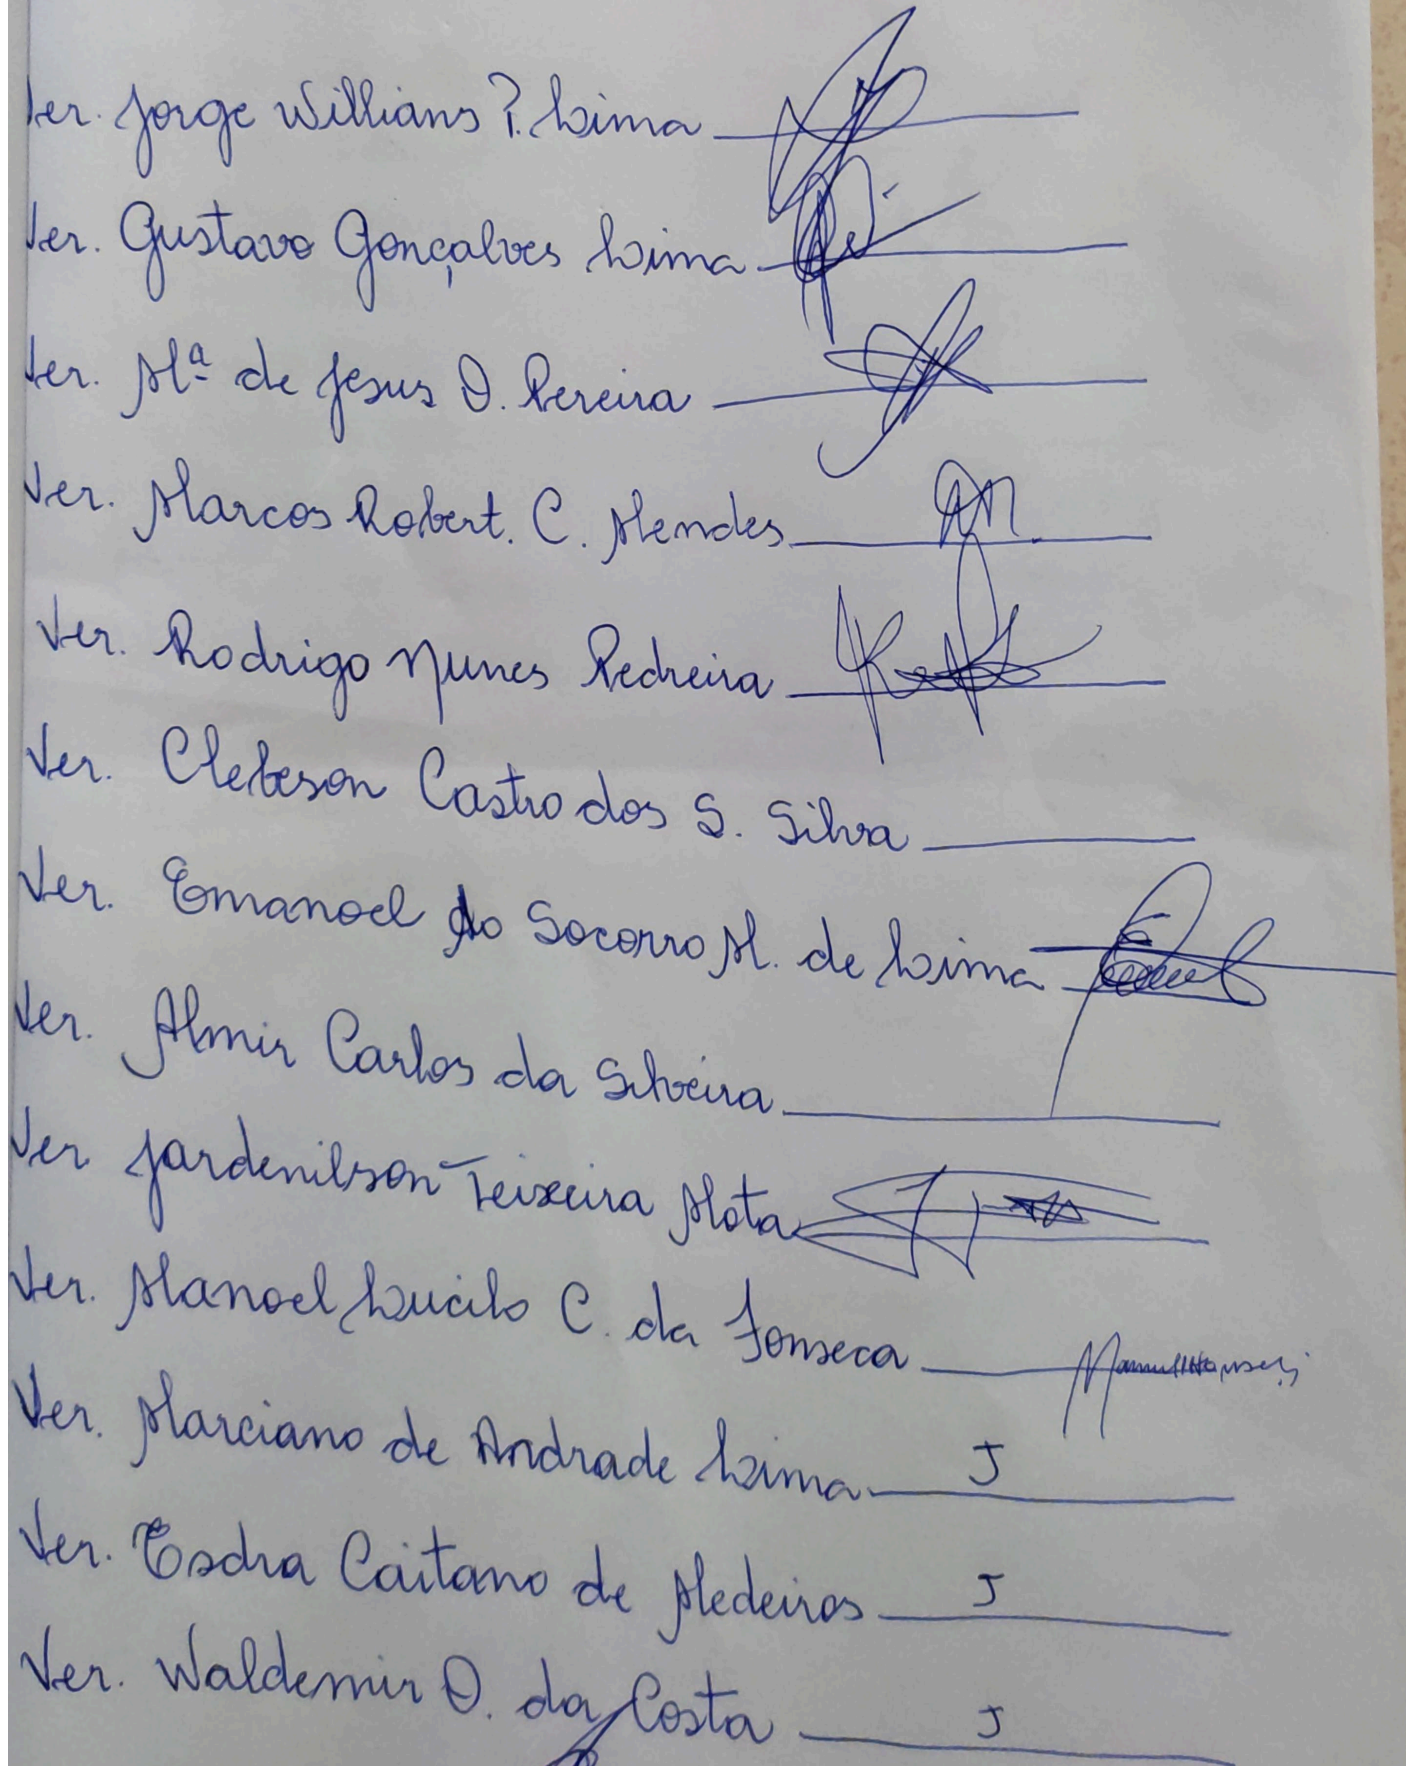 Ver. Jorge Willians P. Lima
Ver. Gustavo Gonçalves Lima
Ver. Mª de Jesus O. Pereira
Ver. Marcos Robert. C. Mendes
Ver. Rodrigo Nunes Pedreira
Ver. Clebeson Castro dos S. Silva
Ver. Emanoel do Socorro M. de Lima
Ver. Almir Carlos da Silveira
Ver Jardenilson Teixeira Mota
Ver. Manoel Lucilo C. da Fonseca
Ver. Marciano de Andrade Lima J
Ver. Esdra Caitano de Medeiros J
Ver. Waldemir O. da Costa J